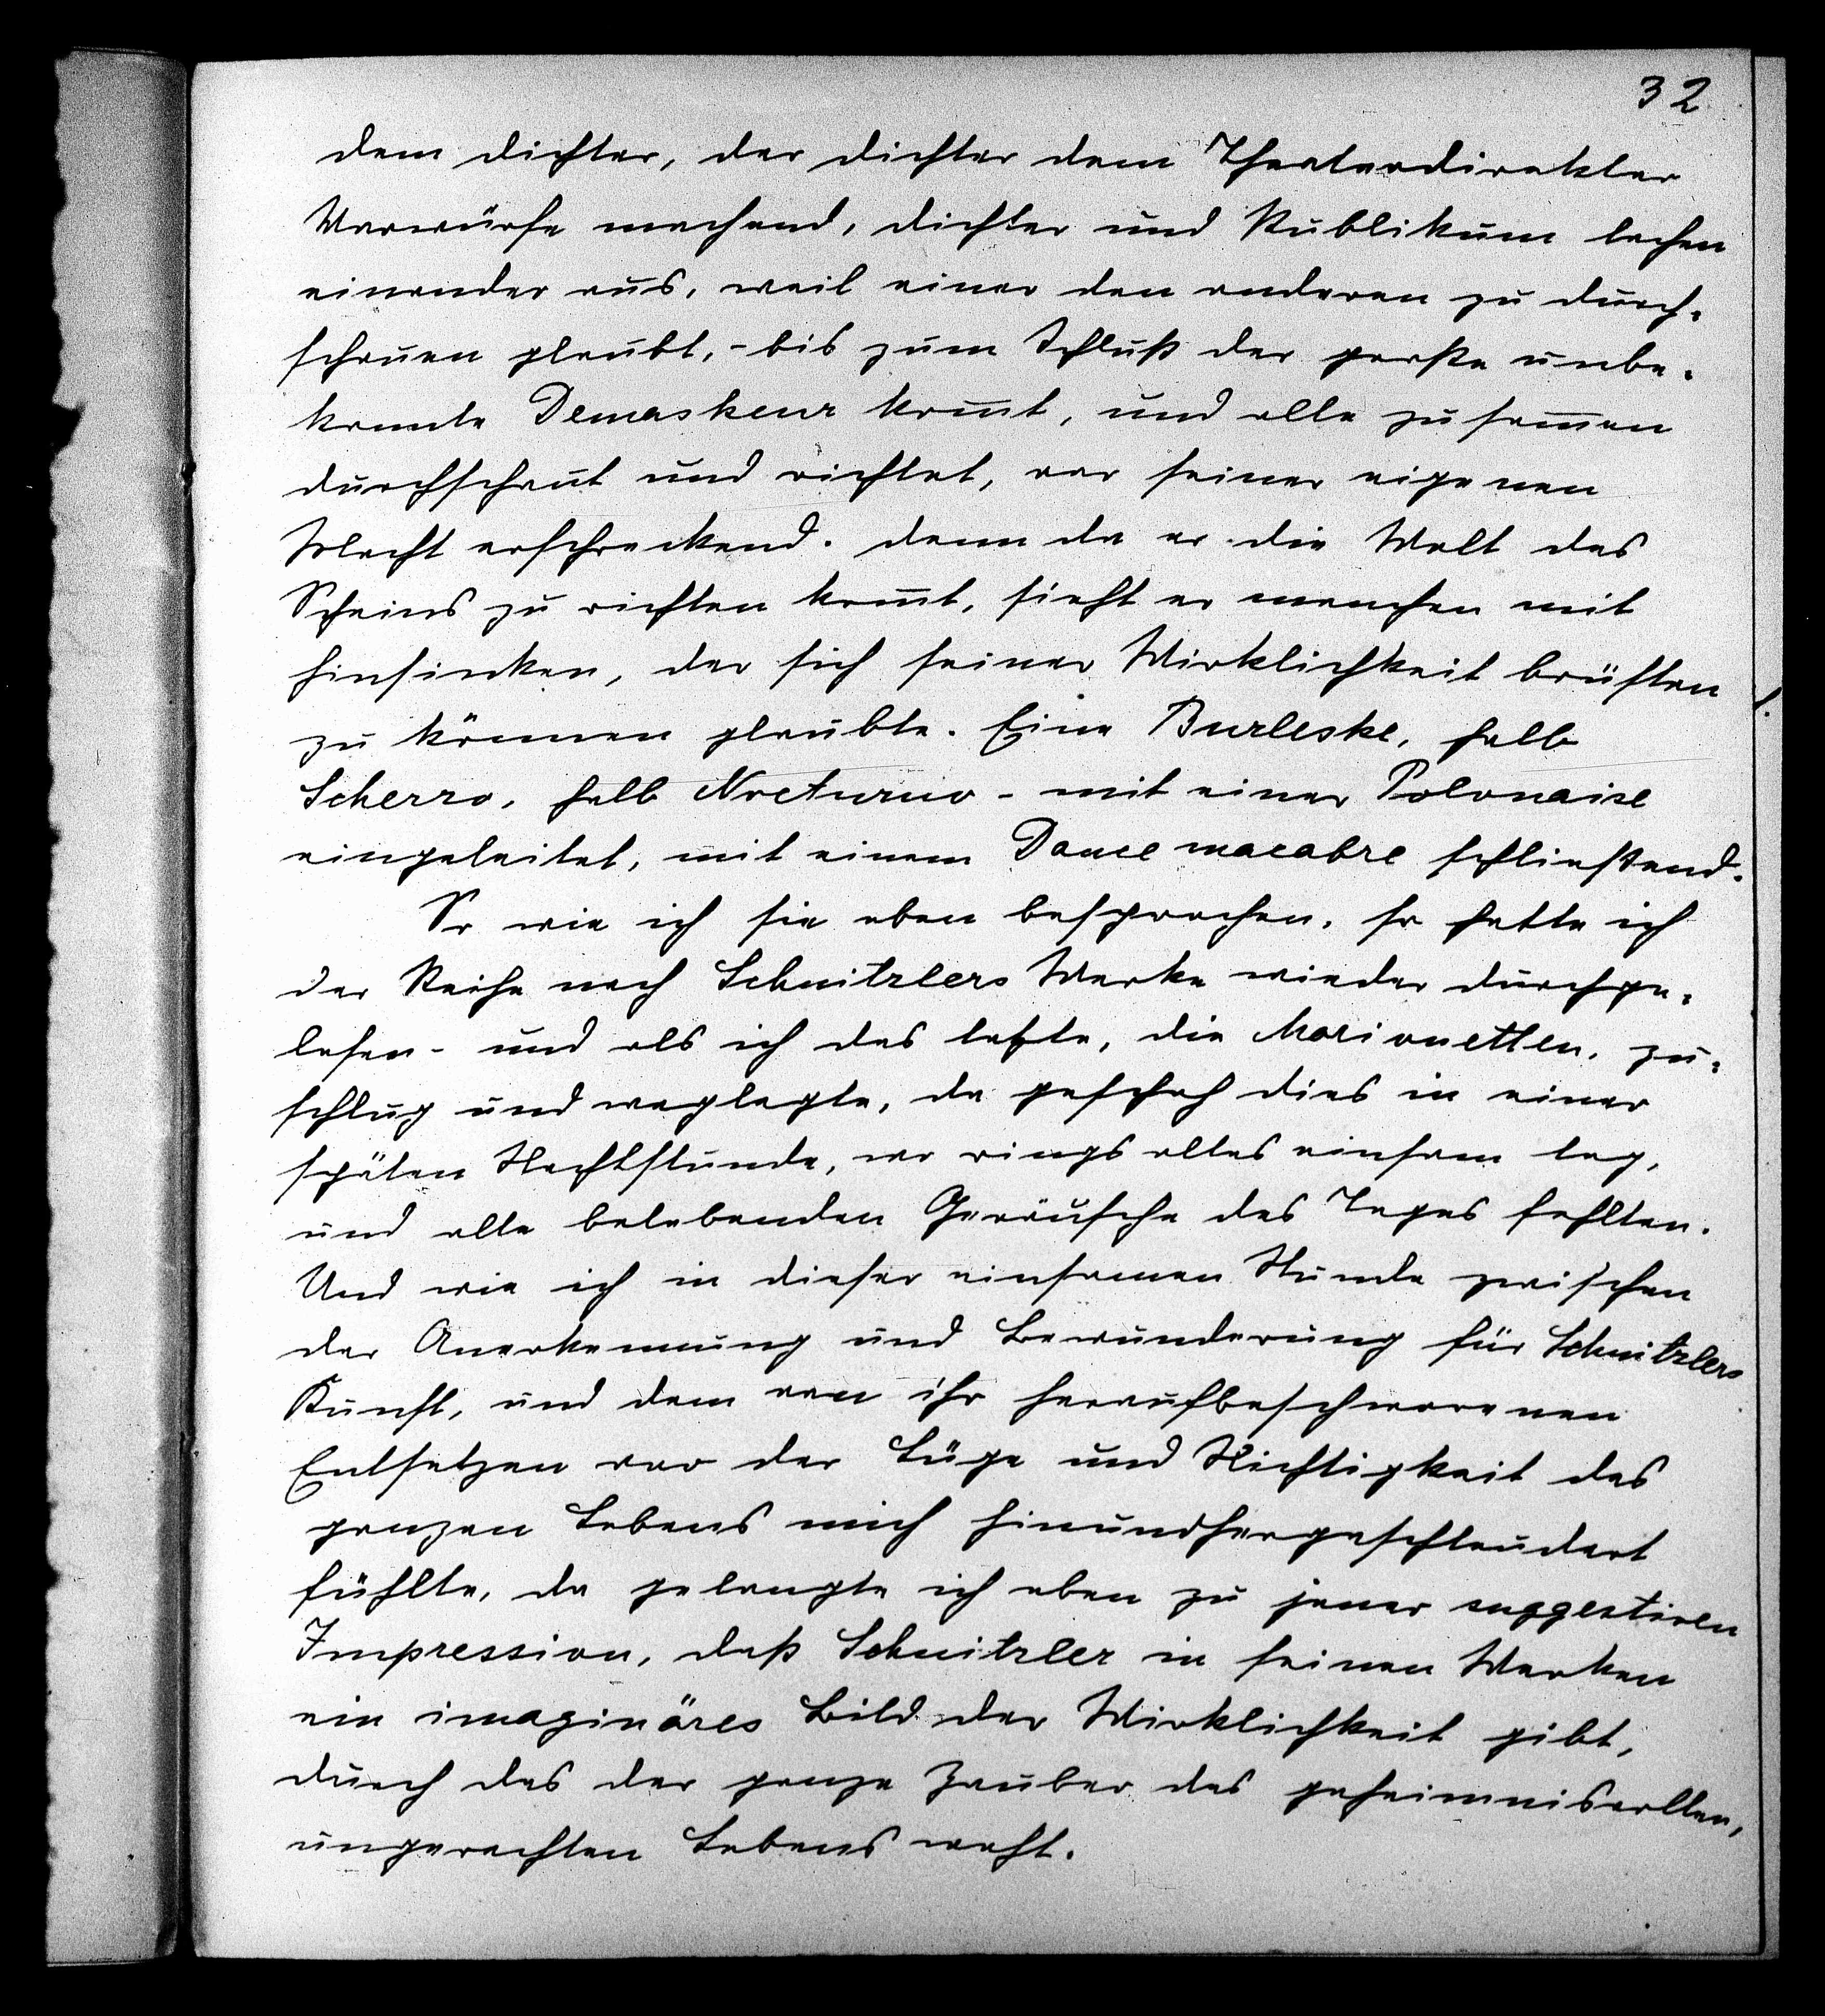 32
dem Dichter, der Dichter dem Theaterdirektor
Vorwürfe machend, Dichter und Publikum lachen
einander aus, weil einer den anderen zu durch-
schauen glaubt, - bis zum Schluß der große unbe-
kannte Demaskeur kom̅t, und alle zusam̅en
durchschaut und richtet, vor seiner eigenen
Macht erschreckend. Denn da er die Welt des
Scheins zu richten kom̅t, sieht er manchen mit
hinsinken, der sich seiner Wirklichkeit brüsten
zu können glaubte. Eine Burleske, halb
Scherzo, halb Nocturno - mit einer Polonaise
eingeleitet, mit einem Dance macabre schließend.
So wie ich sie eben besprochen, so hatte ich
der Reihe nach Schnitzlers Werke wieder durchge-
lesen - und als ich das letzte, die Marionetten, zu-
schlug und weglegte, da geschah dies in einer
späten Nachtstunde, wo rings alles einsam lag,
und alle belebenden Geräusche des Tages fehlten.
Und wie ich in dieser einsamen Stunde zwischen
der Anerkennung und Bewunderung für Schnitzlers
Kunst, und dem von ihr heraufbeschworenen
Entsetzen vor der Lüge und Nichtigkeit des
ganzen Lebens mich hinundhergeschleudert
fühlte, da gelangte ich eben zu jener suggestiven
Impression, daß Schnitzler in seinen Werken
ein imaginäres Bild der Wirklichkeit gibt,
durch das der ganze Zauber des geheimnisvollen,
ungerechten Lebens weht.